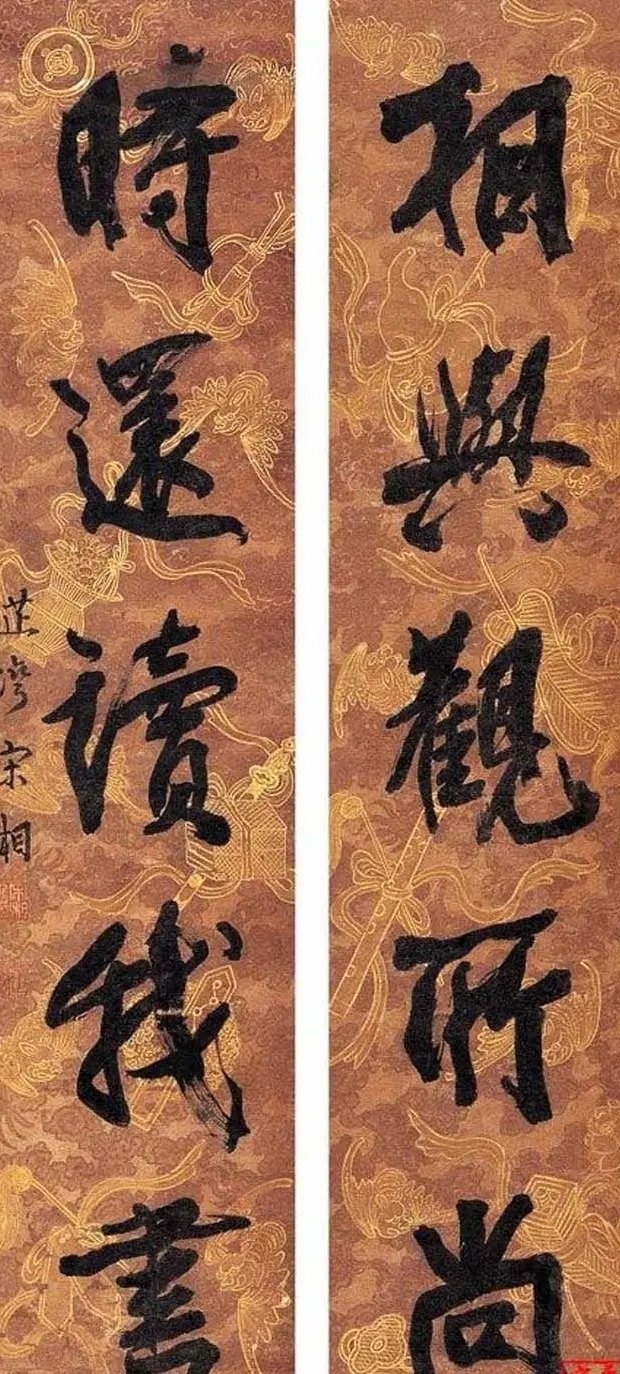 相與觀所尚
時還讀我書
芷灣宋湘